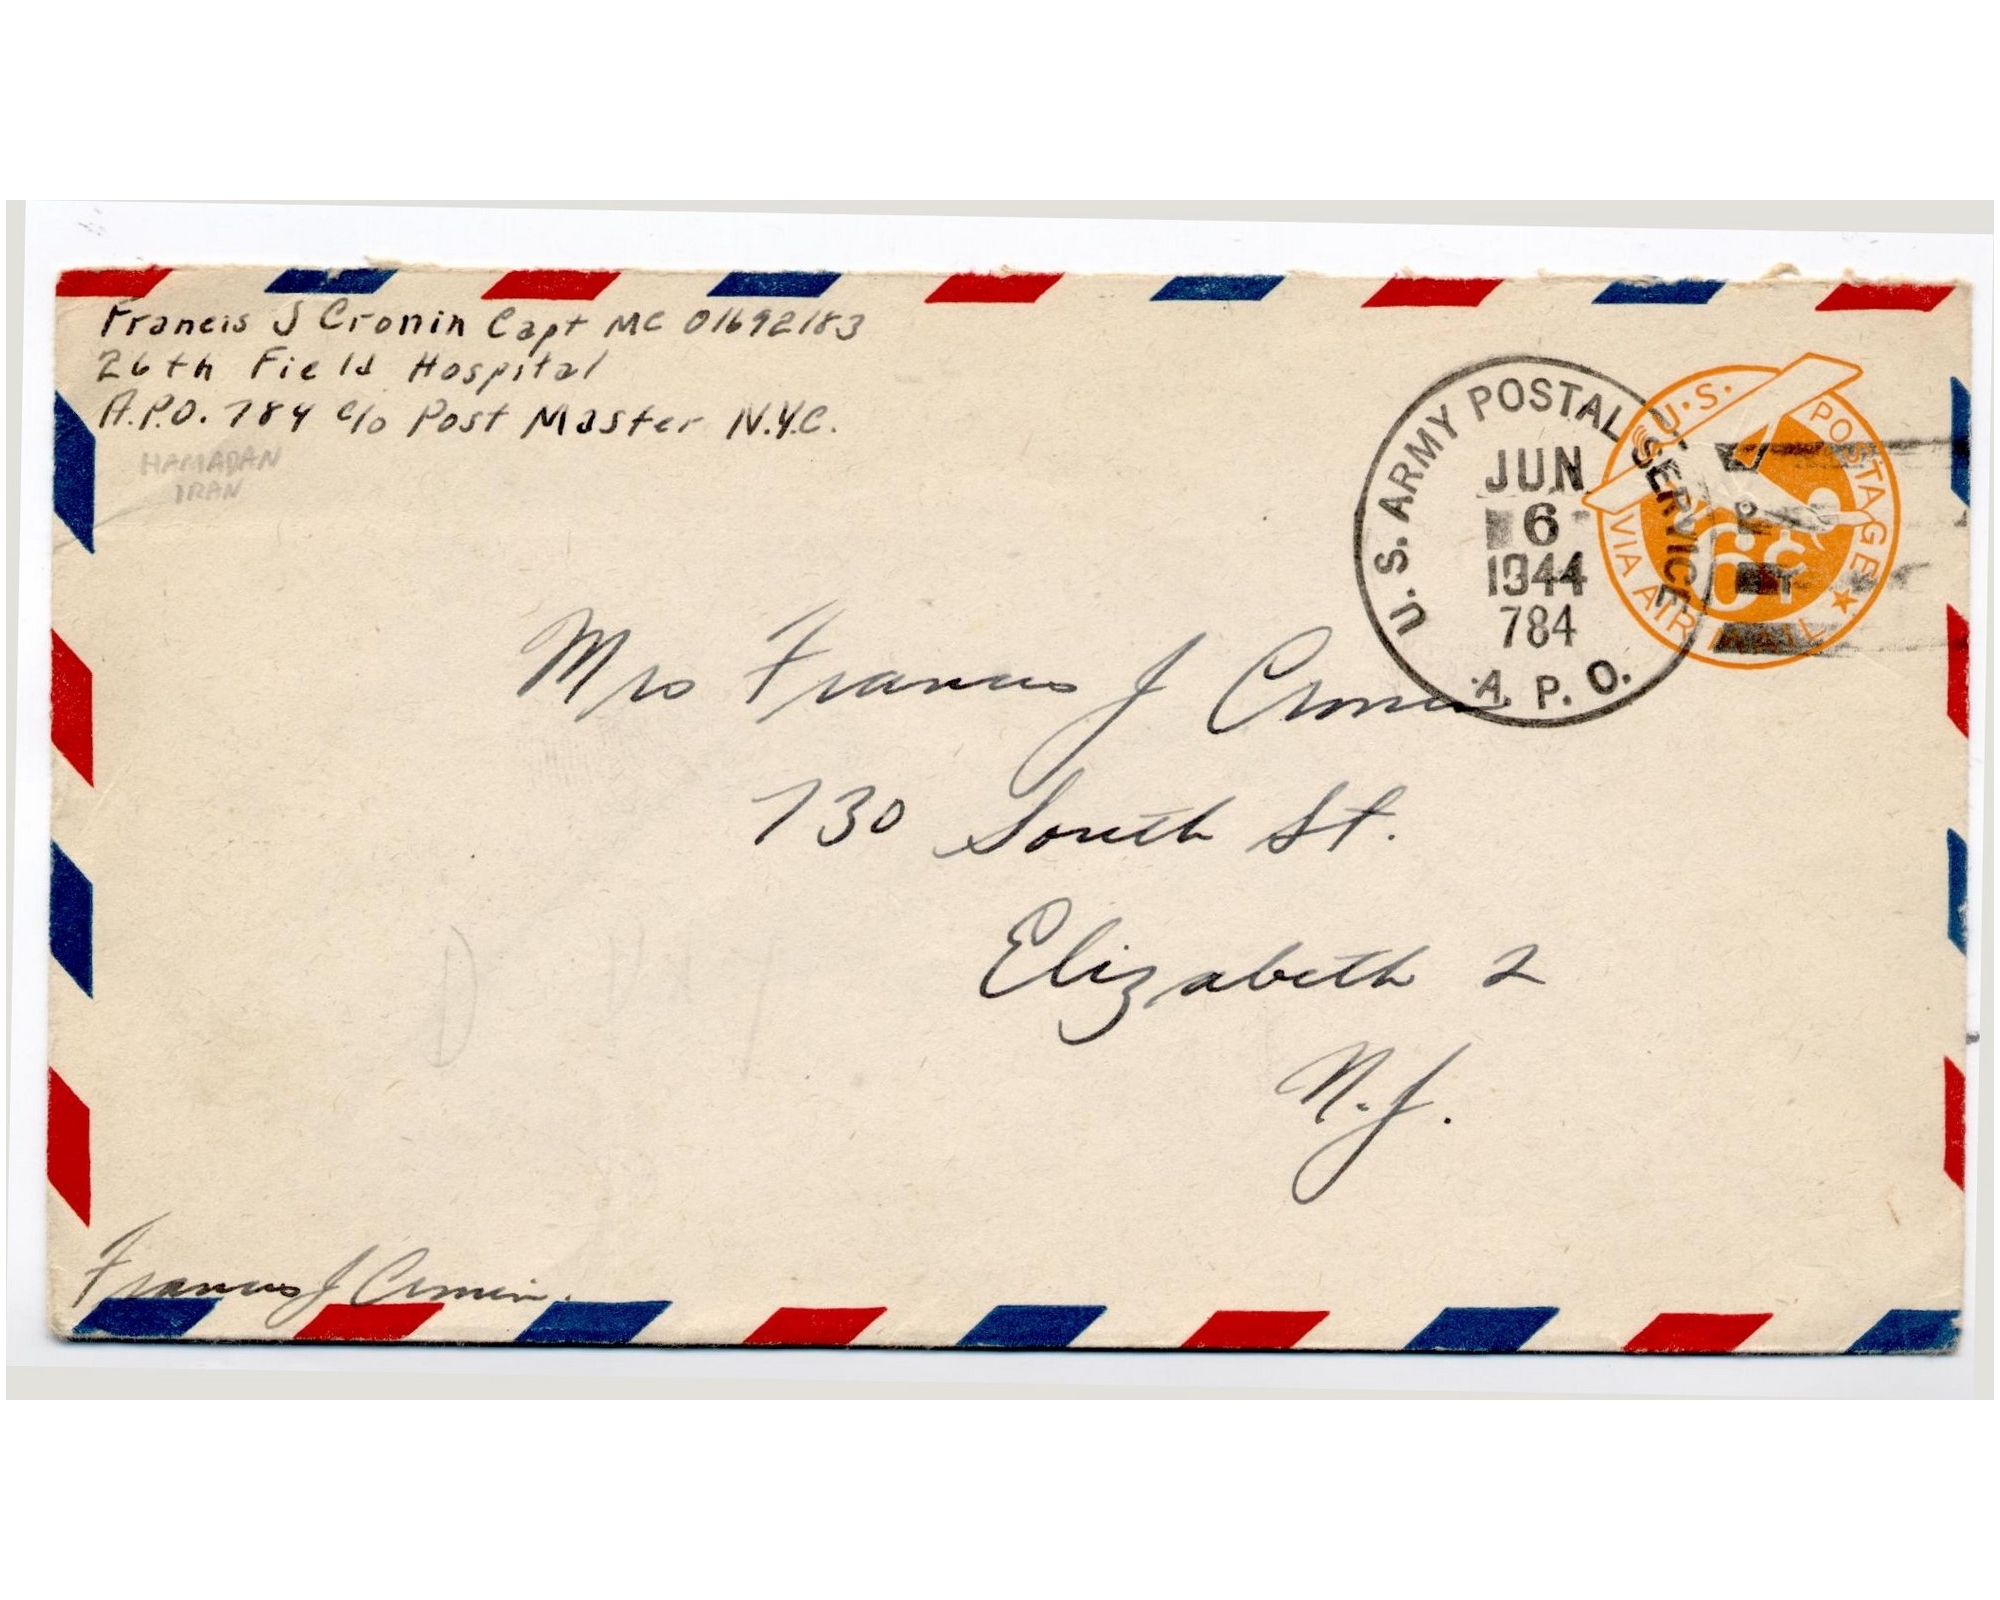 Francis J Cronin Capt MC 01692183
26th Field Hospital
A.P.O. 784 c/o Post Master N.Y.C.
HAMADAN
IRAN
U.S. ARMY POSTAL SERVICE
JUN
6
1944
784
A. P. O.
U.S. POSTAGE
6¢
VIA AIR MAIL
Mrs Francis J Cronin
730 South St.
Elizabeth 2
N.J.
Francis J Cronin.